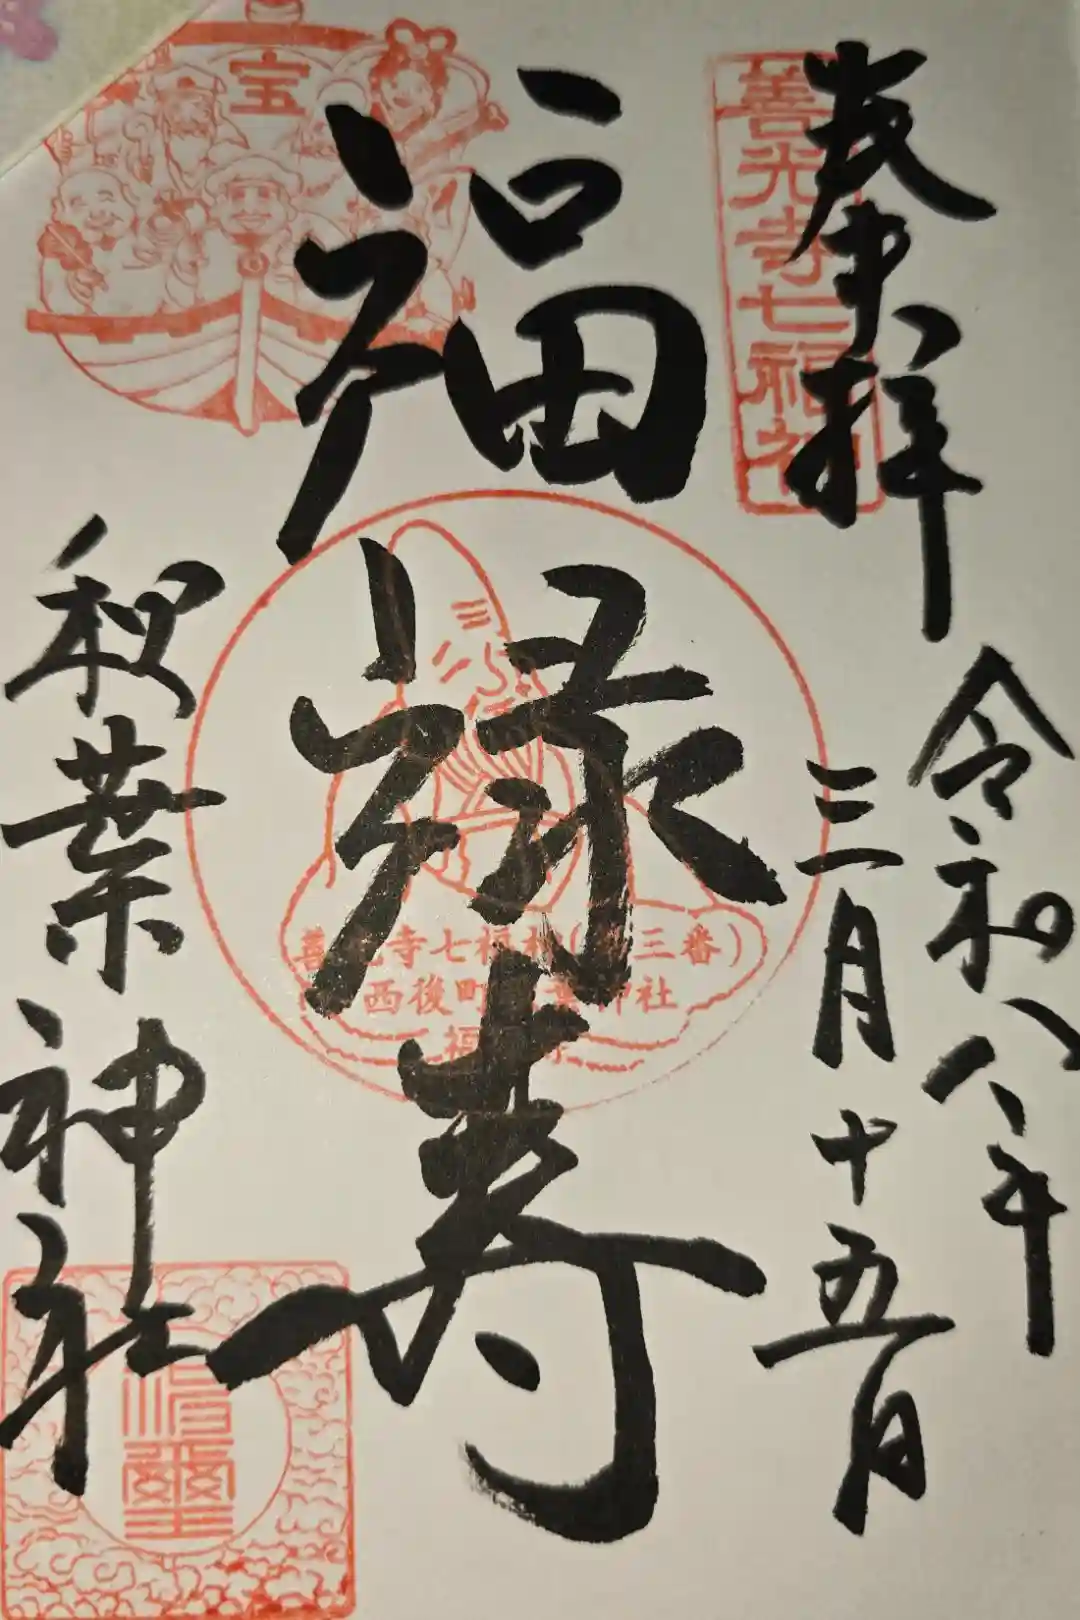 奉拝
善光寺七福神
令和八年
三月十五日
宝
福禄寿
善光寺七福神(第三番)
西後町秋葉神社
福禄寿
秋葉神社